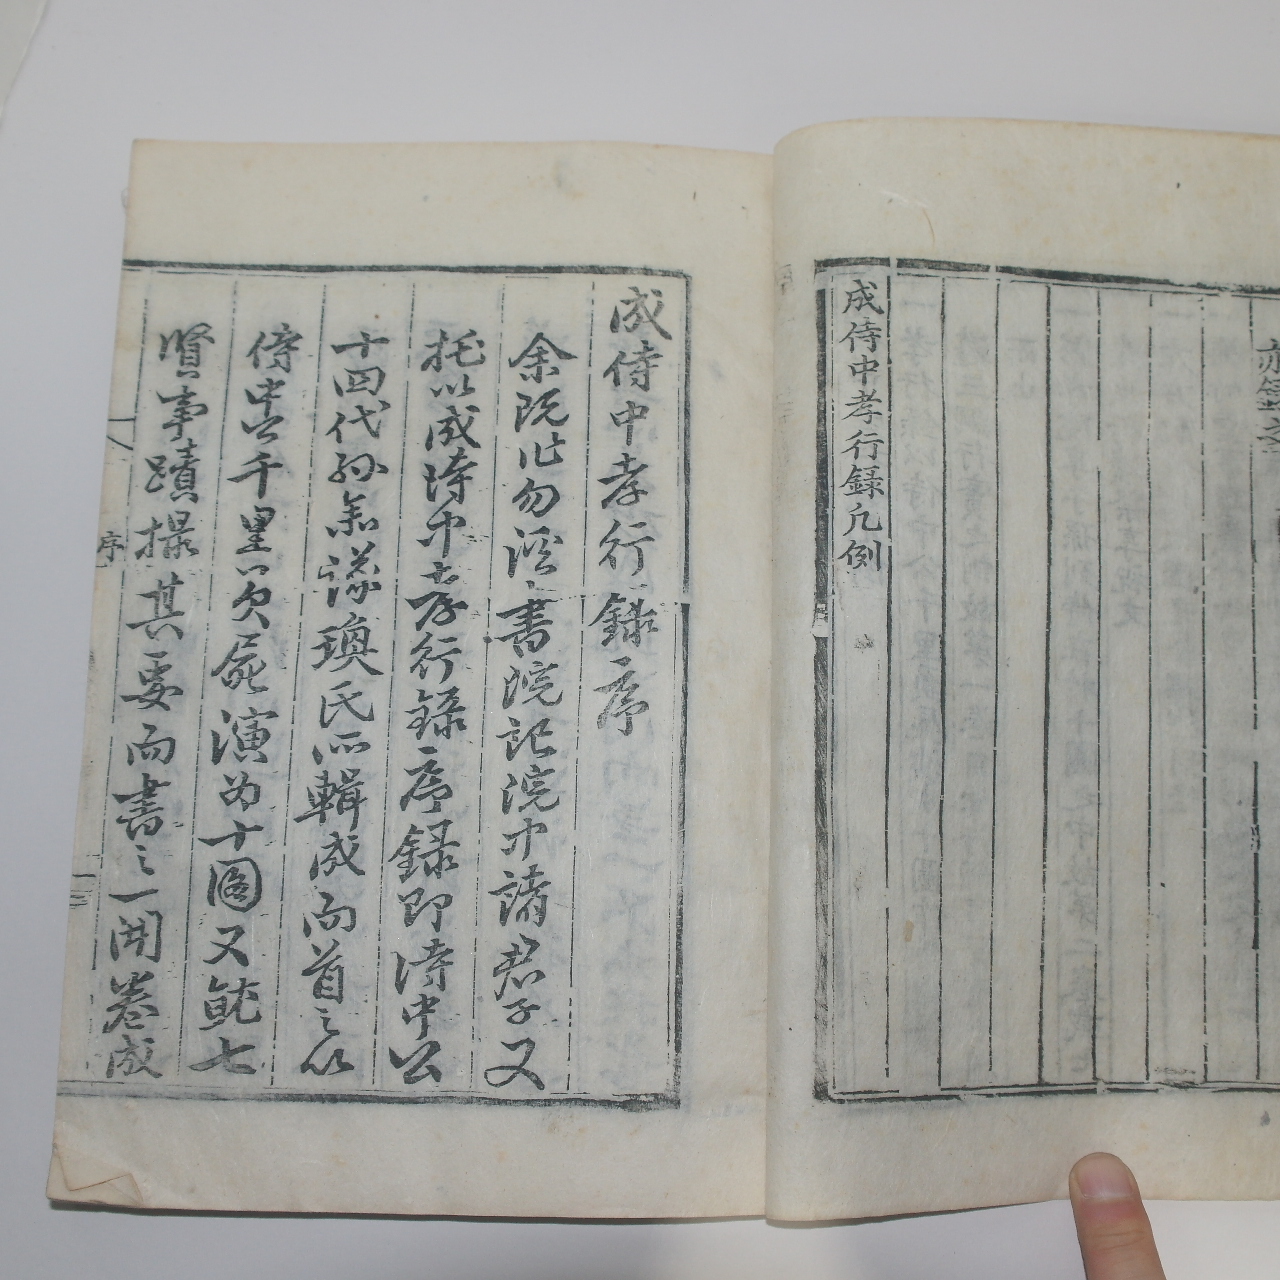 亦
成侍中孝行録凡例
成侍中孝行錄序
余既作勿溪書院記院中諸君子又
托以成侍中孝行錄序錄即侍中公
十四代孫 瑍氏所輯成而首之以
侍中公千里 屍演爲十圖又就七
賢事蹟撮其要而書之一開卷成
序
一